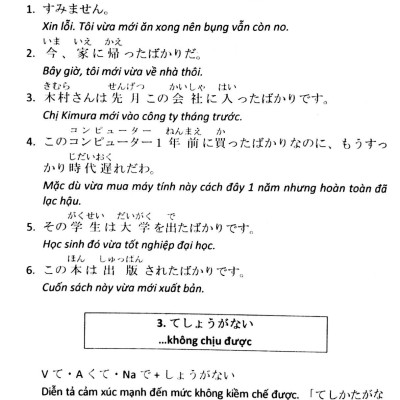 1. すみません。
Xin lỗi. Tôi vừa mới ăn xong nên bụng vẫn còn no.
いま いえ かえ
2. 今、家に帰ったばかりだ。
Bây giờ, tôi mới vừa về nhà thôi.
きむら せんげつ かいしゃ はい
3. 木村さんは先月この会社に入ったばかりです。
Chị Kimura mới vào công ty tháng trước.
コンピューター ねんまえ か
4. このコンピューター1年前に買ったばかりなのに、もうすっ
じだいおく
かり時代遅れだわ。
Mặc dù vừa mua máy tính này cách đây 1 năm nhưng hoàn toàn đã
lạc hậu.
がくせい だいがく で
5. その学生は大学を出たばかりです。
Học sinh đó vừa tốt nghiệp đại học.
ほん しゅっぱん
6. この本は出版されたばかりです。
Cuốn sách này vừa mới xuất bản.
3. てしょうがない
...không chịu được
V て・A くて・Na で + しょうがない
Diễn tả cảm xúc mạnh đến mức không kiềm chế được. 「てしかたがな